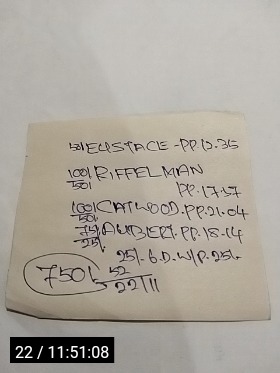 50/ EUSTACE - PP.15.35
100/ RIFFELMAN
50/ PP.17.57
100/ CATWOOD. PP.21.04
50/
75/ AUBERT. PP. 18-14
25/
25/. 6.D.W/P. 25/.
750/ 52
22/11
22 / 11:51:08